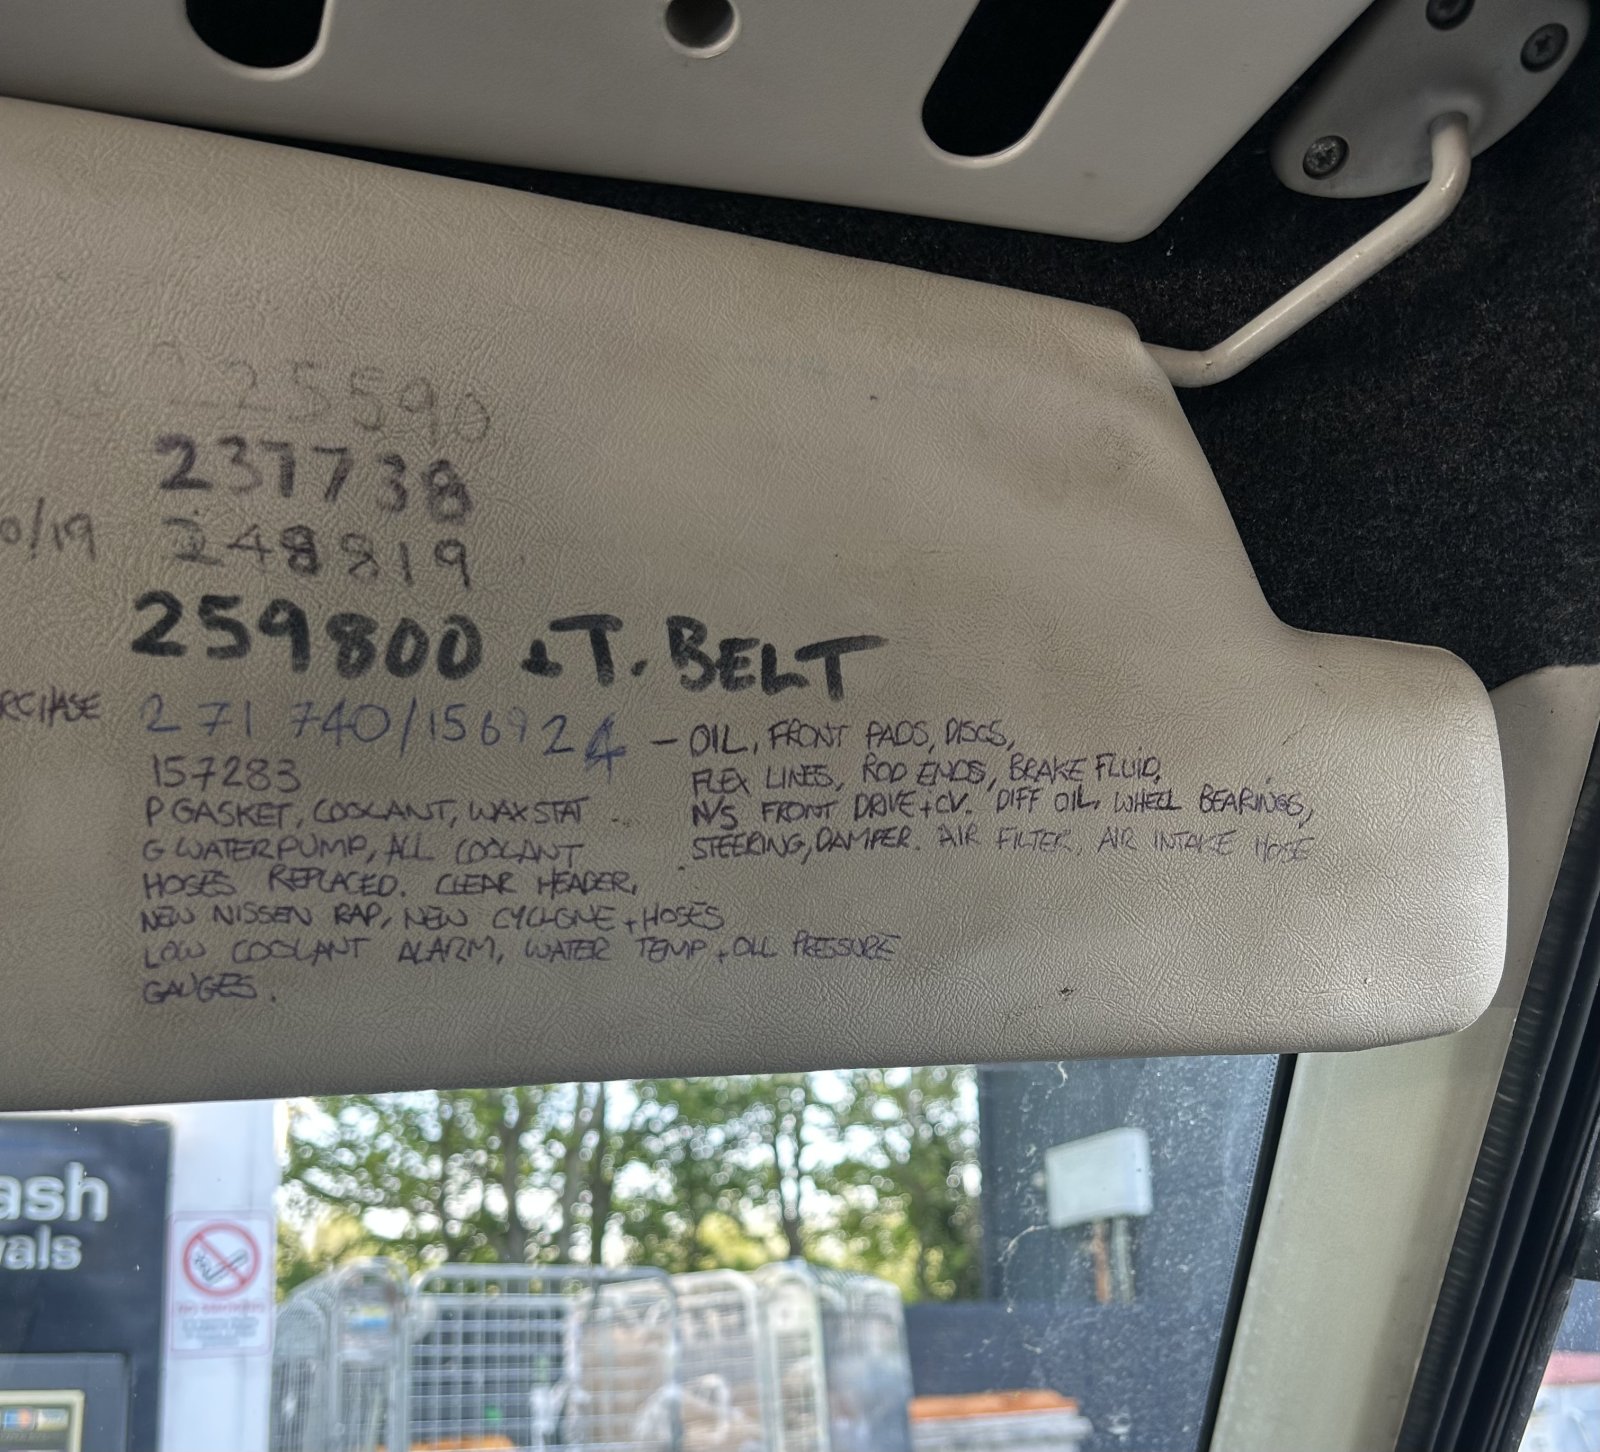 225590
237738
0/19 248819
259800 + T. BELT
RCHASE 271 740/156924 – OIL, FRONT PADS, DISCS,
FLEX LINES, ROD ENDS, BRAKE FLUID,
N/S FRONT DRIVE + CV. DIFF OIL, WHEEL BEARINGS,
STEERING, DAMPER. AIR FILTER, AIR INTAKE HOSE
157283
P GASKET, COOLANT, WAXSTAT
G WATERPUMP, ALL COOLANT
HOSES REPLACED. CLEAR HEADER,
NEW NISSEN RAP, NEW CYCLONE + HOSES
LOW COOLANT ALARM, WATER TEMP + OIL PRESSURE
GAUGES.
ash
vals
NO SMOKING